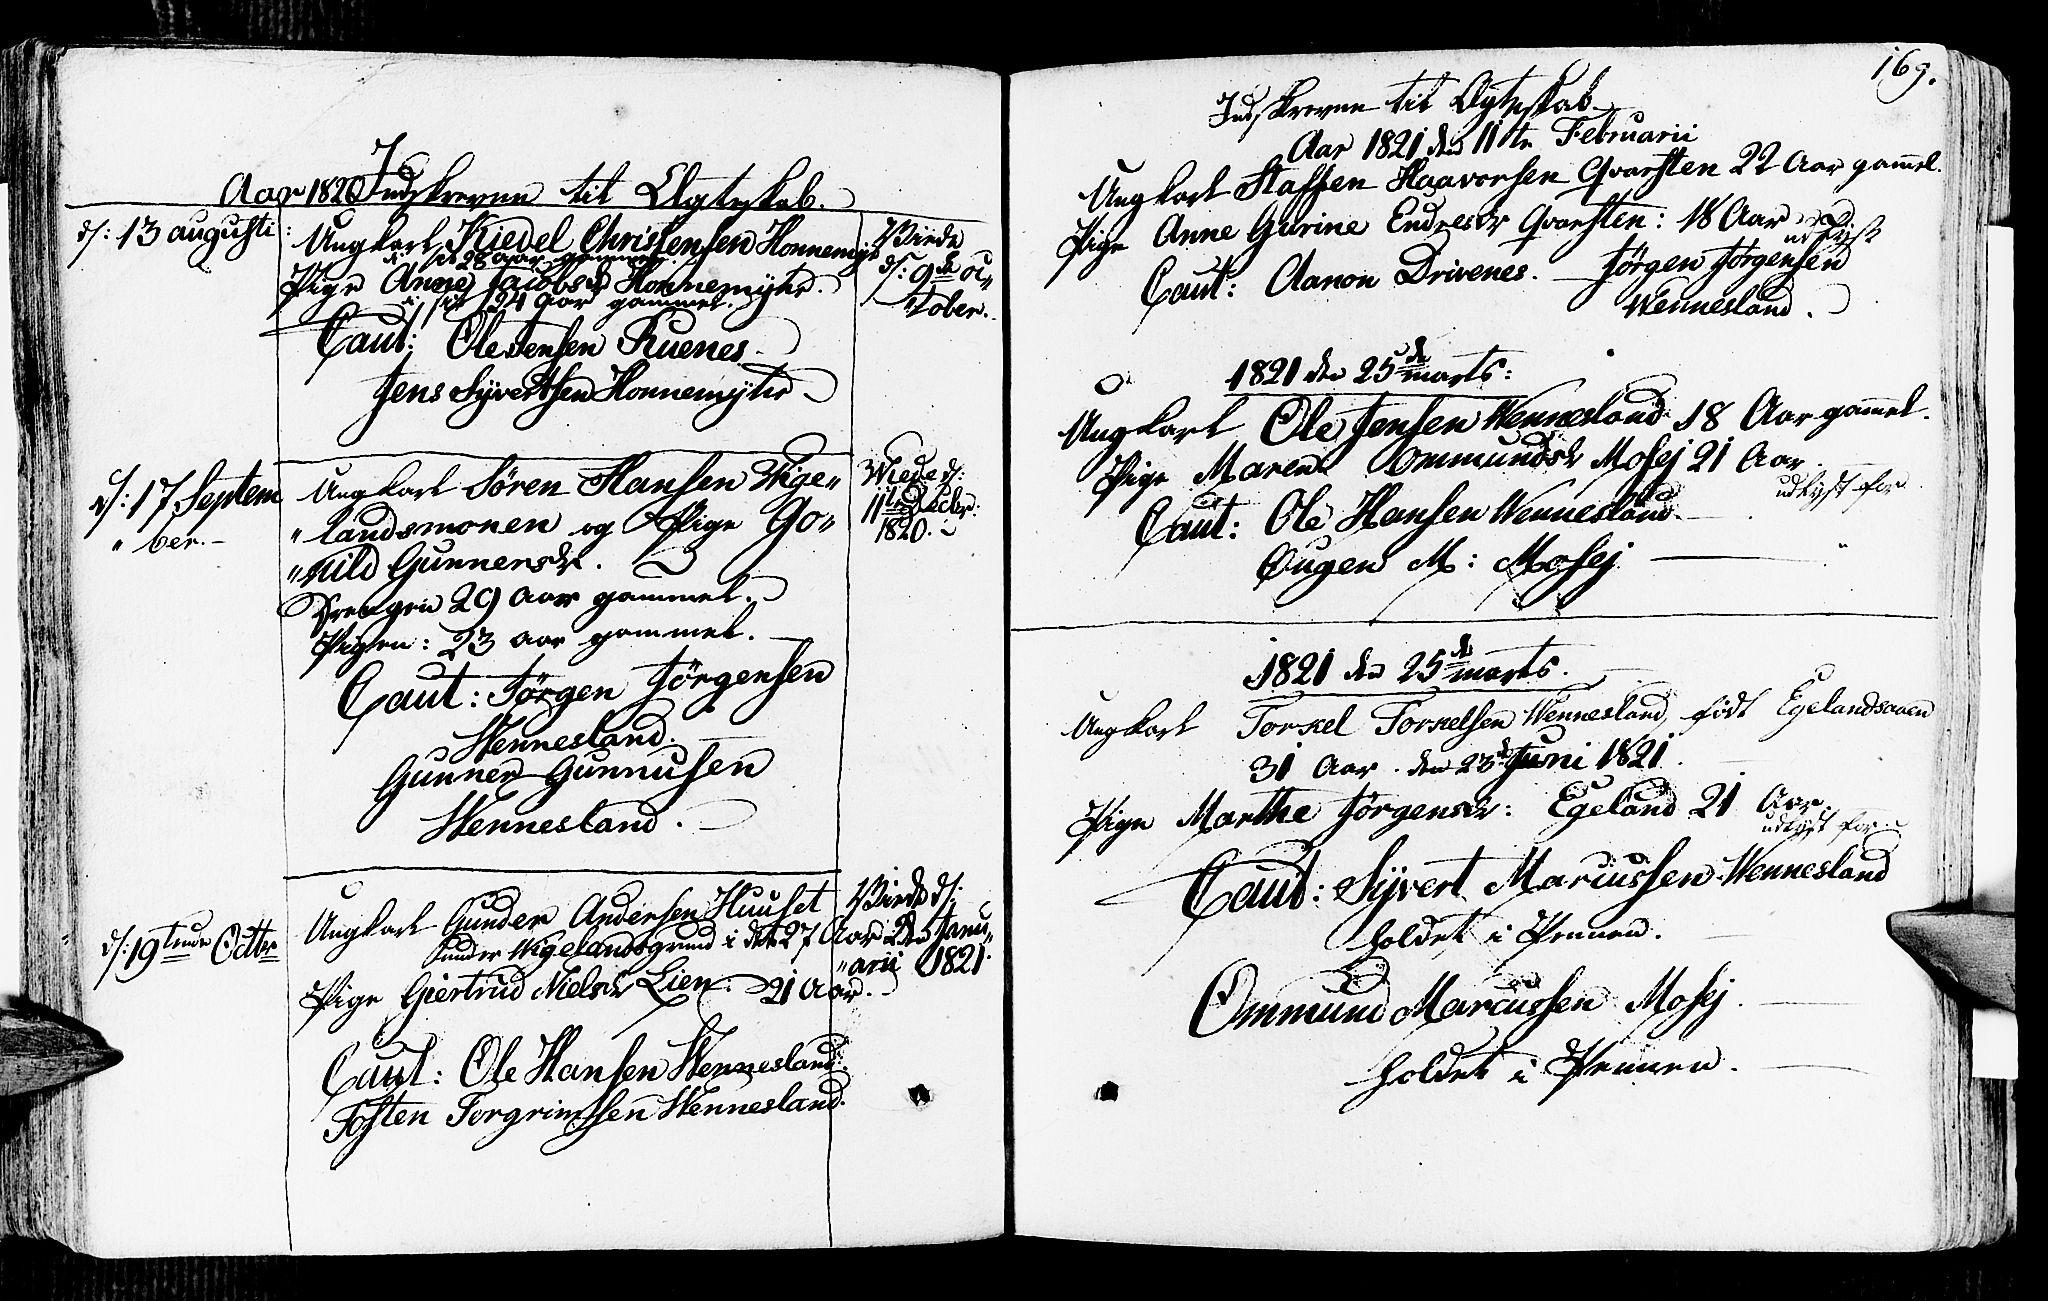 Aar 1820 Indskrevne til Ægteskab.
d: 13 augusti:
Ungkarl Kiedel Christensen Honnemyhr
i sit 28 aar gammel.
Pige Anne Jacobsd Honnemyhr.
i sit 24 aar gammel.
Caut: Ole Jensen Ruenes
Jens Syvertsen Honnemyhr
Viede
d: 9de Oc„
„tober.
d: 17 Septem
„ ber.
Ungkarl Søren Hansen Wige„
„landsmonen og Pige Go„
„nild Gunnersdr.
Drengen 29 aar gammel.
Pigen: 23 aar gammel.
Caut: Jørgen Jørgensen
Wennesland.
Gunner Gunnusen
Wennesland.
Wiede d:
11te Decbr:
1820.
d: 19tende Octbr
Ungkarl Gunder Andersen Huuset
under Wigelandsgrund i det 27 Aar
Pige Giertrud Nielsdr Lien. 21 Aar.
Caut: Ole Hansen Wennesland:
Tosten Torgrimsen Wennesland.
Viede d:
2den Janu„
„arii 1821.
169.
Indskrevne til Ægteskab
Aar 1821 den 11te Februarii
Ungkarl Staffen Haavorsen Qvarsten 22 Aar gammel.
Pige Anne Gurine Endresdr Qvarsten: 18 Aar
udlyst
Caut: Aanon Drivenes. Jørgen Jørgensen
Wennesland.
1821 den 25de marts:
Ungkarl Ole Jensen Wennesland 18 Aar gammel.
Pige Maren Ommundsdr Mosej 21 Aar
udlyst for
Caut: Ole Hansen Wennesland.
Ougen M: Mosej
1821 den 25de marts.
Ungkarl Torkel Torkelsen Wennesland, født Egelandsaaen
31 Aar. den 23de Juni 1821.
Pige Marthe Jørgensdr: Egeland 21 Aar.
udlyst for
Caut: Syvert Marcussen Wennesland
holdet i Pennen.
Ommund Marcussen Mosej.
holdet i Pennen.